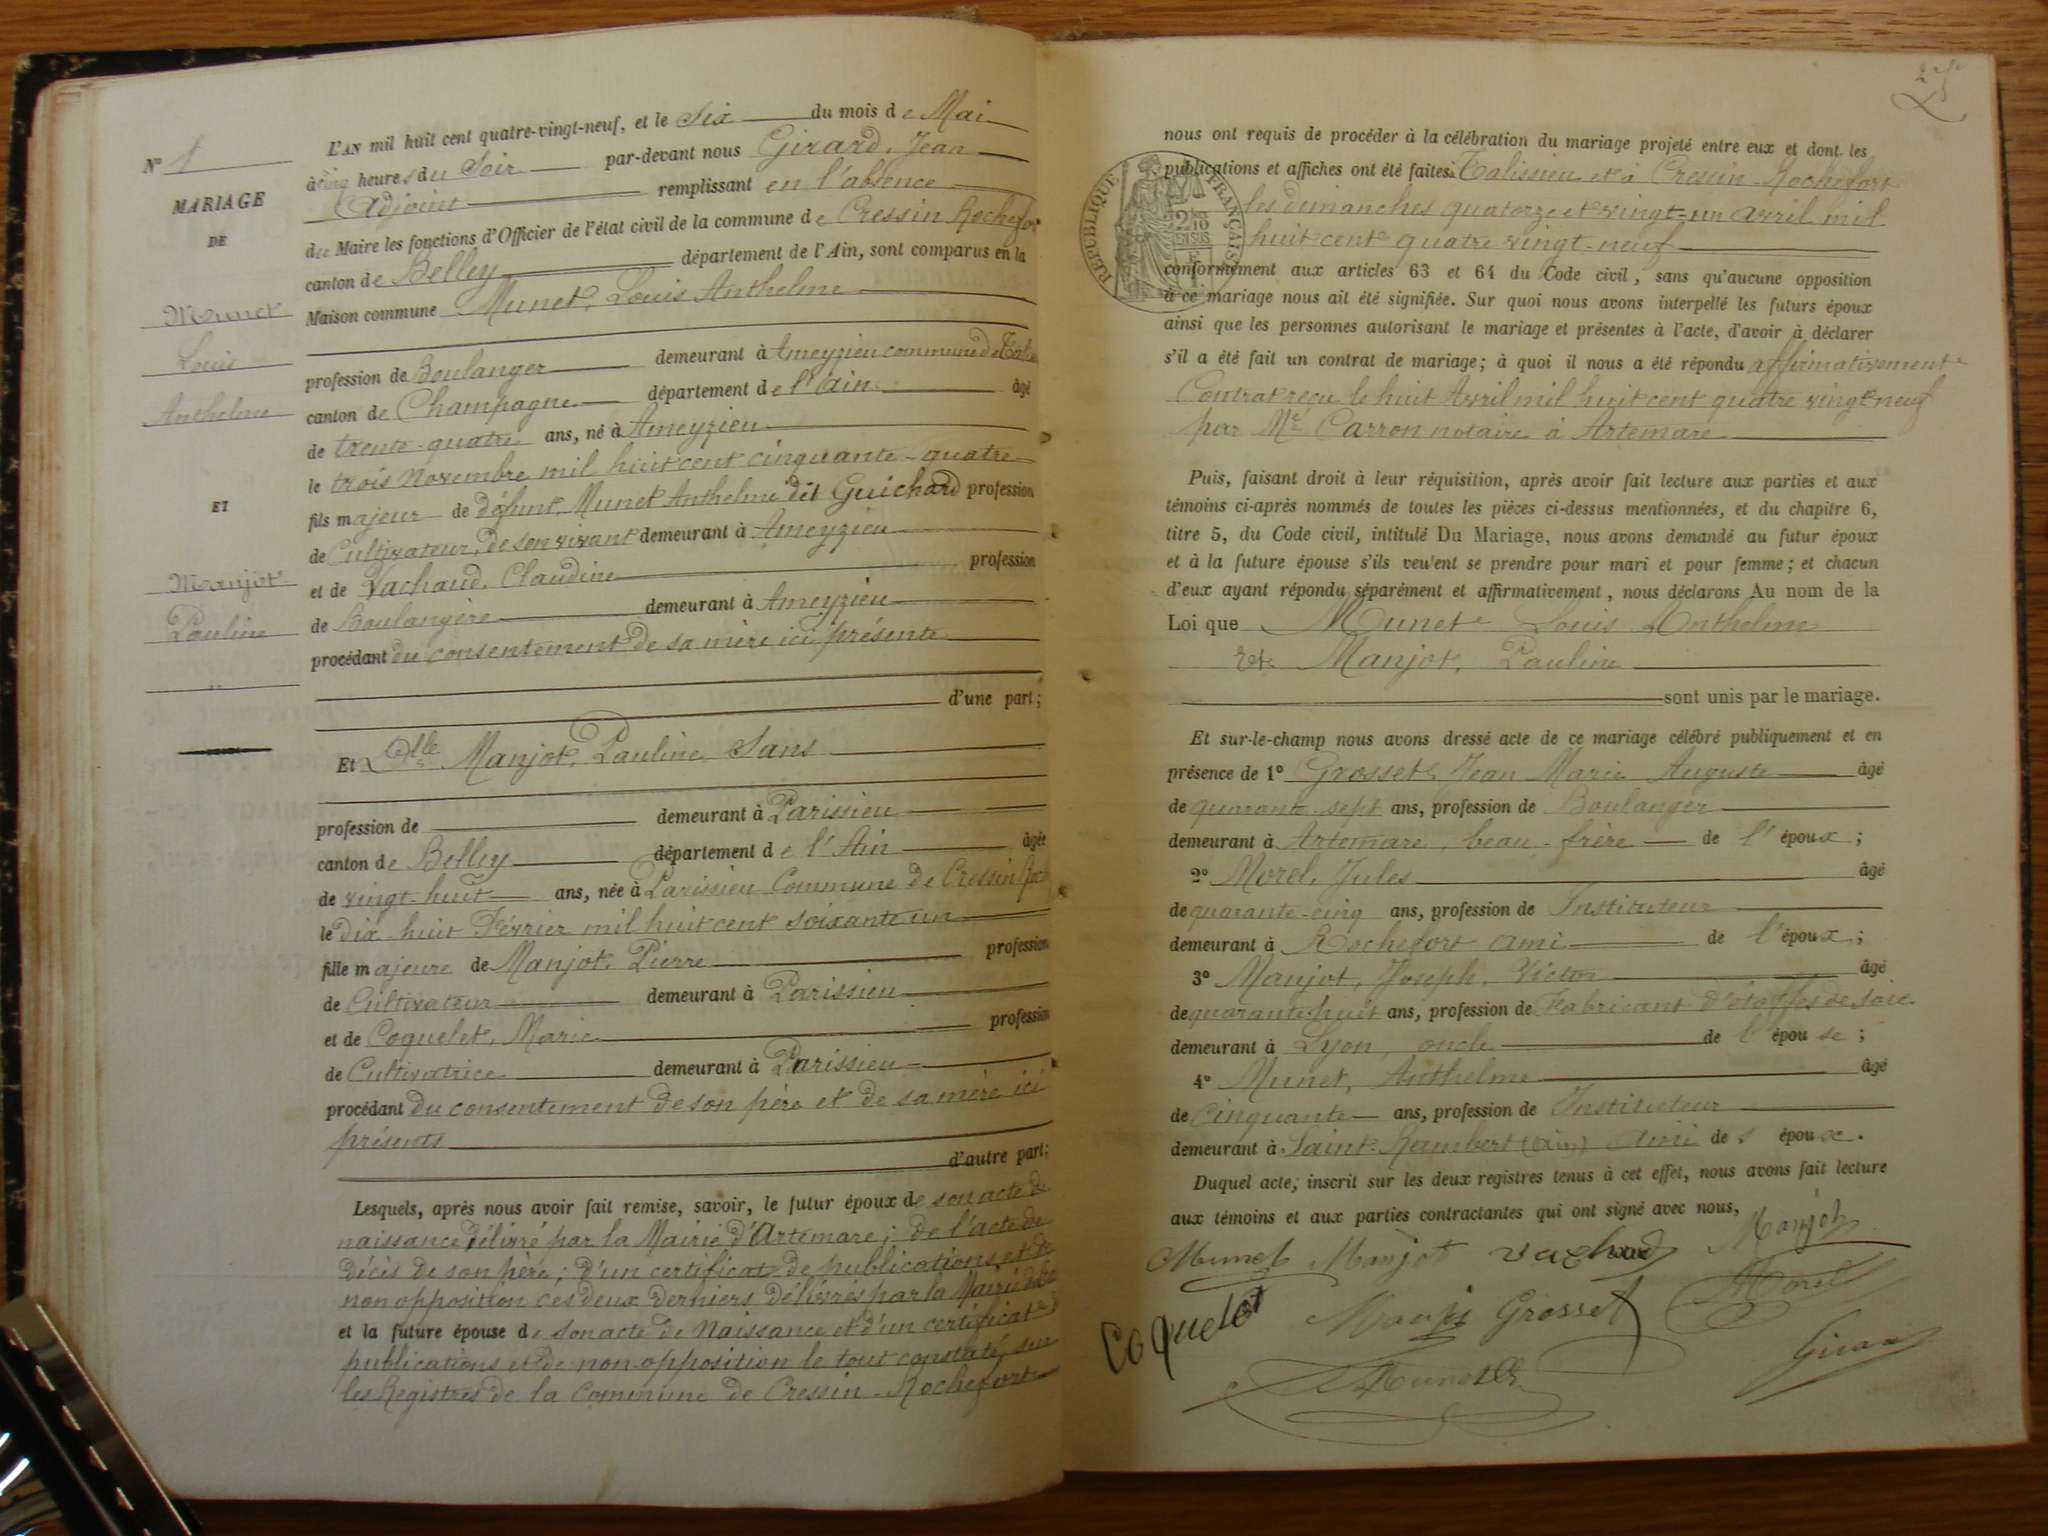 N° 1
MARIAGE
DE
Munet
Louis
Anthelme
ET
Manjot
Pauline
L'AN mil huit cent quatre-vingt-neuf, et le Six du mois de Mai
à cinq heures du Soir par-devant nous Girard, Jean
Adjoint remplissant en l'absence
du Maire les fonctions d'Officier de l'état civil de la commune de Cressin Rochefort
canton de Belley département de l'Ain, sont comparus en la
Maison commune Munet, Louis Anthelme
profession de Boulanger demeurant à Ameyzieu commune de
canton de Champagne département de l'Ain âgé
de trente-quatre ans, né à Ameyzieu
le trois Novembre mil huit cent cinquante-quatre
fils majeur de défunt Munet Anthelme dit Guichard profession
de Cultivateur, de son vivant demeurant à Ameyzieu
et de Vachaud, Claudine profession
de Boulangère demeurant à Ameyzieu
procédant du consentement de sa mère ici présente
d'une part;
Et Dlle Manjot, Pauline Sans
profession de demeurant à Parissieu
canton de Belley département de l'Ain âgée
de vingt-huit ans, née à Parissieu Commune de Cressin
le dix-huit Février mil huit cent soixante un
fille majeure de Manjot, Pierre profession
de Cultivateur demeurant à Parissieu
et de Coquelet, Marie profession
de Cultivatrice demeurant à Parissieu
procédant du consentement de son père et de sa mère ici
présents
d'autre part;
Lesquels, après nous avoir fait remise, savoir, le futur époux de son acte de
naissance délivré par la Mairie d'Artemare; de l'acte de
décès de son père; d'un certificat de publications et de
non opposition ces deux derniers délivrés par la Mairie
et la future épouse de son acte de Naissance et d'un certificat de
publications et de non-opposition le tout constaté sur
les Registres de la Commune de Cressin-Rochefort
nous ont requis de procéder à la célébration du mariage projeté entre eux et dont les
publications et affiches ont été faites à Talissieu et à Cressin-Rochefort
les dimanches quatorze et vingt-un avril mil
huit cent quatre vingt-neuf
RÉPUBLIQUE FRANÇAISE
conformément aux articles 63 et 64 du Code civil, sans qu'aucune opposition
à ce mariage nous ait été signifiée. Sur quoi nous avons interpellé les futurs époux
ainsi que les personnes autorisant le mariage et présentes à l'acte, d'avoir à déclarer
s'il a été fait un contrat de mariage; à quoi il nous a été répondu affirmativement
Contrat reçu le huit Avril mil huit cent quatre vingt-neuf
par Me Carron notaire à Artemare
Puis, faisant droit à leur réquisition, après avoir fait lecture aux parties et aux
témoins ci-après nommés de toutes les pièces ci-dessus mentionnées, et du chapitre 6,
titre 5, du Code civil, intitulé Du Mariage, nous avons demandé au futur époux
et à la future épouse s'ils veulent se prendre pour mari et pour femme; et chacun
d'eux ayant répondu séparément et affirmativement, nous déclarons Au nom de la
Loi que Munet Louis Anthelme
Et Manjot, Pauline
sont unis par le mariage.
Et sur-le-champ nous avons dressé acte de ce mariage célébré publiquement et en
présence de 1° Grosset, Jean Marie Auguste âgé
de quarante-sept ans, profession de Boulanger
demeurant à Artemare, beau-frère de l'époux;
2° Morel, Jules âgé
de quarante-cinq ans, profession de Instituteur
demeurant à Rochefort ami de l'époux;
3° Manjot, Joseph, Victor âgé
de quarante-huit ans, profession de Fabricant d'étoffes de soie
demeurant à Lyon, oncle de l'épouse;
4° Munet, Anthelme âgé
de Cinquante ans, profession de Instituteur
demeurant à Saint-Rambert (Ain) ami de s époux.
Duquel acte, inscrit sur les deux registres tenus à cet effet, nous avons fait lecture
aux témoins et aux parties contractantes qui ont signé avec nous,
Munet Manjot vachaud Manjot
Coquelet Manjot Grosset Morel
Munet Girard